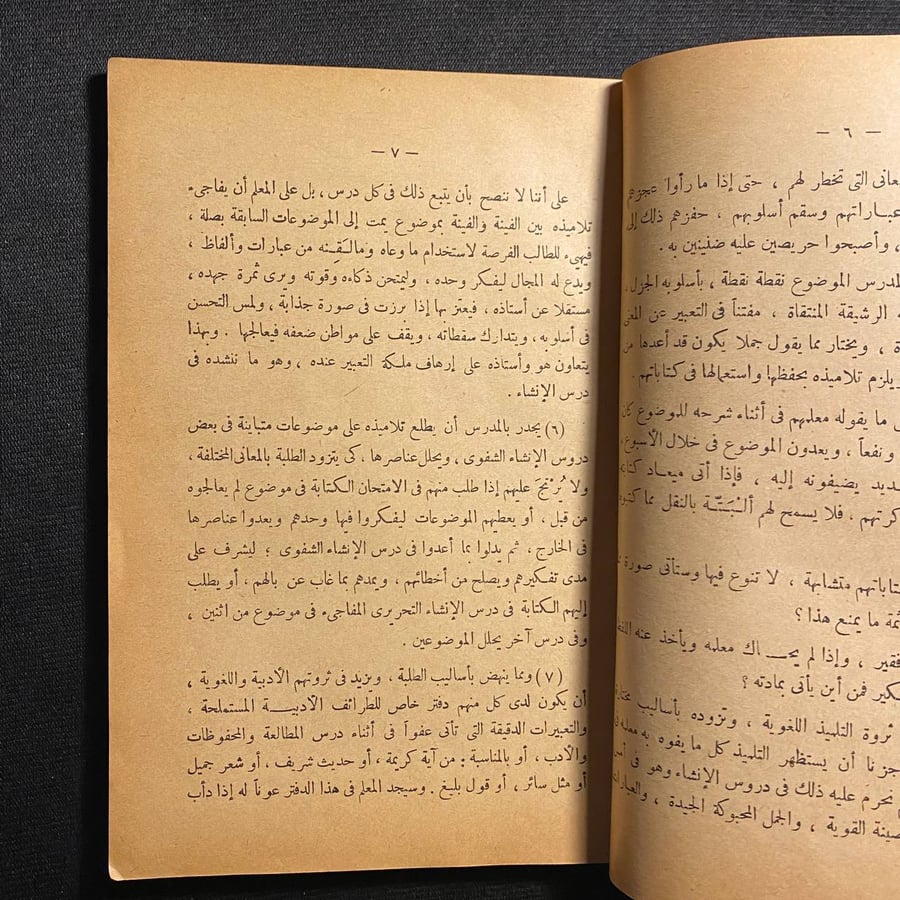 — ٦ —
عانى التى تخطر لهم ، حتى إذا ما رأوا عجزهم
عباراتهم وسقم أسلوبهم ، حفزهم ذلك إلى
، وأصبحوا حريصين عليه ضنينين به .
لمدرس الموضوع نقطة نقطة ، بأسلوبه الجزل ،
ه الرشيقة المنتقاة ، مفتناً فى التعبير عن المعنى
ة ، ويختار مما يقول جملا يكون قد أعدها من
ويلزم تلاميذه بحفظها واستعمالها فى كتاباتهم .
ما يقوله معلمهم فى أثناء شرحه للموضوع كان
ونفعاً ، ويعدون الموضوع فى خلال الأسبوع ،
يضيفونه إليه ، فإذا أتى ميعاد كتابة
كرتهم ، فلا يسمح لهم ألبتة بالنقل مما كتبوه
كتاباتهم متشابهة ، لا تنوع فيها وستأتى صورة
ثمة ما يمنع هذا ؟
فقير ، وإذا لم يحـــاك معلمه ويأخذ عنه
كير فمن أين يأتى بمادته ؟
ثروة التلميذ اللغوية ، وتزوده بأساليب
جزنا أن يستظهر التلميذ كل ما يفوه به معلمه
نحرم عليه ذلك فى دروس الإنشاء وهو فى
القوية ، والجمل المحبوكة الجيدة ،
— ٧ —
على أننا لا ننصح بأن يتبع ذلك فى كل درس ، بل على المعلم أن يفاجىء
تلاميذه بين الفينة والفينة بموضوع يمت إلى الموضوعات السابقة بصلة ،
فيهيء للطالب الفرصة لاستخدام ما وعاه ومالَقِنه من عبارات وألفاظ ،
ويدع له المجال ليفكر وحده ، وليمتحن ذكاءه وقوته ويرى ثمرة جهده ،
مستقلا عن أستاذه ، فيعتز بها إذا برزت فى صورة جذابة ، ولمس التحسن
فى أسلوبه ، ويتدارك سقطاته ، ويقف على مواطن ضعفه فيعالجها . وبهذا
يتعاون هو وأستاذه على إرهاف ملكة التعبير عنده ، وهو ما ننشده فى
درس الإنشاء .
(٦) يجدر بالمدرس أن يطلع تلاميذه على موضوعات متباينة فى بعض
دروس الإنشاء الشفوى ، ويحلل عناصرها ، كى يتزود الطلبة بالمعانى المختلفة ،
ولا يُرْتج عليهم إذا طلب منهم فى الامتحان الكتابة فى موضوع لم يعالجوه
من قبل ، أو يعطيهم الموضوعات ليفكروا فيها وحدهم ويعدوا عناصرها
فى الخارج ، ثم يدلوا بما أعدوا فى درس الإنشاء الشفوى ؛ ليشرف على
مدى تفكيرهم ويصلح من أخطائهم ، ويمدهم بما غاب عن بالهم ، أو يطلب
إليهم الكتابة فى درس الإنشاء التحريرى المفاجىء فى موضوع من اثنين ،
وفى درس آخر يحلل الموضوعين .
(٧) ومما ينهض بأساليب الطلبة ، ويزيد فى ثروتهم الأدبية واللغوية ،
أن يكون لدى كل منهم دفتر خاص للطرائف الأدبيـــة المستملحة ،
والتعبيرات الدقيقة التى تأتى عفواً فى أثناء درس المطالعة والمحفوظات
والأدب ، أو بالمناسبة : من آية كريمة ، أو حديث شريف ، أو شعر جميل
أو مثل سائر ، أو قول بليغ . وسيجد المعلم فى هذا الدفتر عوناً له إذا دأب